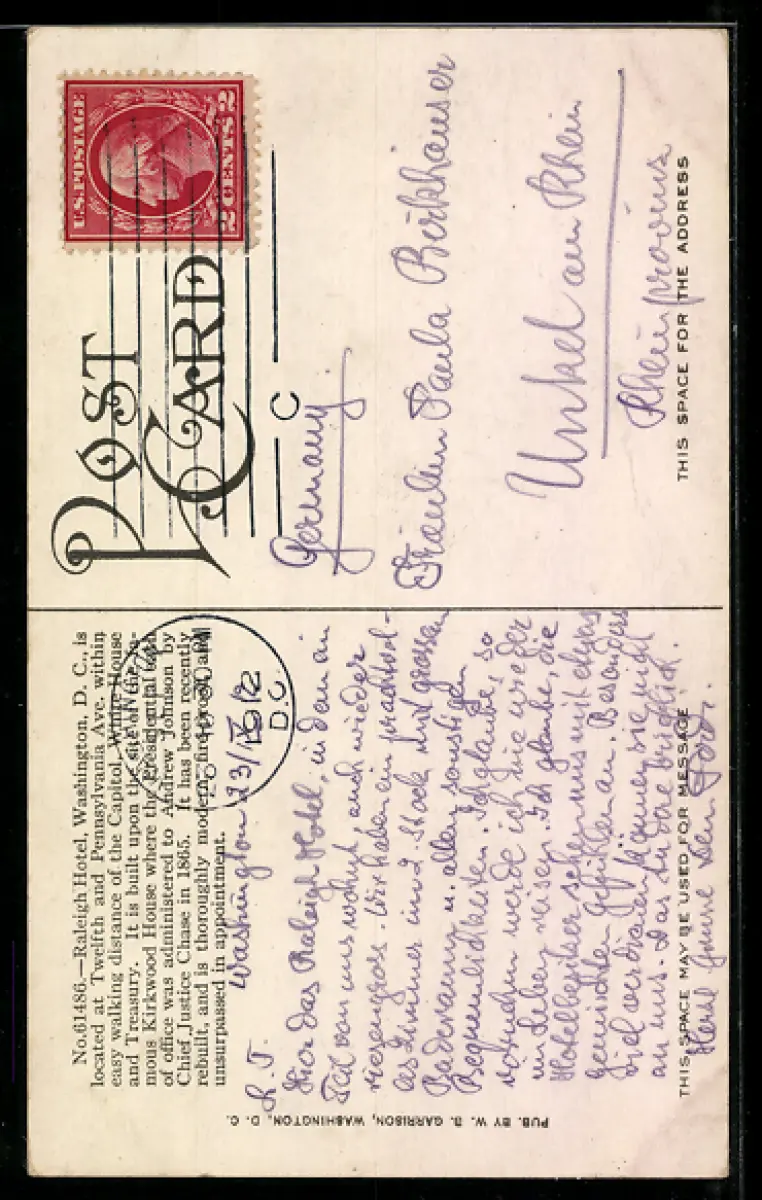 No.61486.—Raleigh Hotel, Washington, D. C., is
located at Twelfth and Pennsylvania Ave. within
easy walking distance of the Capitol, White House
and Treasury. It is built upon the site of the fa-
mous Kirkwood House where the Presidential oath
of office was administered to Andrew Johnson by
Chief Justice Chase in 1865. It has been recently
rebuilt, and is thoroughly modern, fire-proof, and
unsurpassed in appointment.
POST
CARD
U.S. POSTAGE
2 CENTS 2
1912
D.C.
C
Washington 23/IX 12
L. P.
Hier das Raleigh Hotel, in dem ein
Teil von uns wohnt, auch wieder
riesengross. Wir haben ein prachtvol-
les Zimmer im 2. Stock mit grossem
Baderaum u. allen sonstigen
Bequemlichkeiten. Ich glaube, so
vornehm werde ich nie wieder
im Leben reisen. Ich glaube, die
Hotelbesitzer sehen uns mit etwas
gemischten Gefühlen an. Besonders
viel verdienen können sie nicht
an uns. Das ist
Herzl. Grüsse Dein
Germany.
Fräulein Paula Berkhäuser
Unkel am Rhein
Rheinprovinz
THIS SPACE MAY BE USED FOR MESSAGE
THIS SPACE FOR THE ADDRESS
PUB. BY W. B. GARRISON, WASHINGTON, D. C.